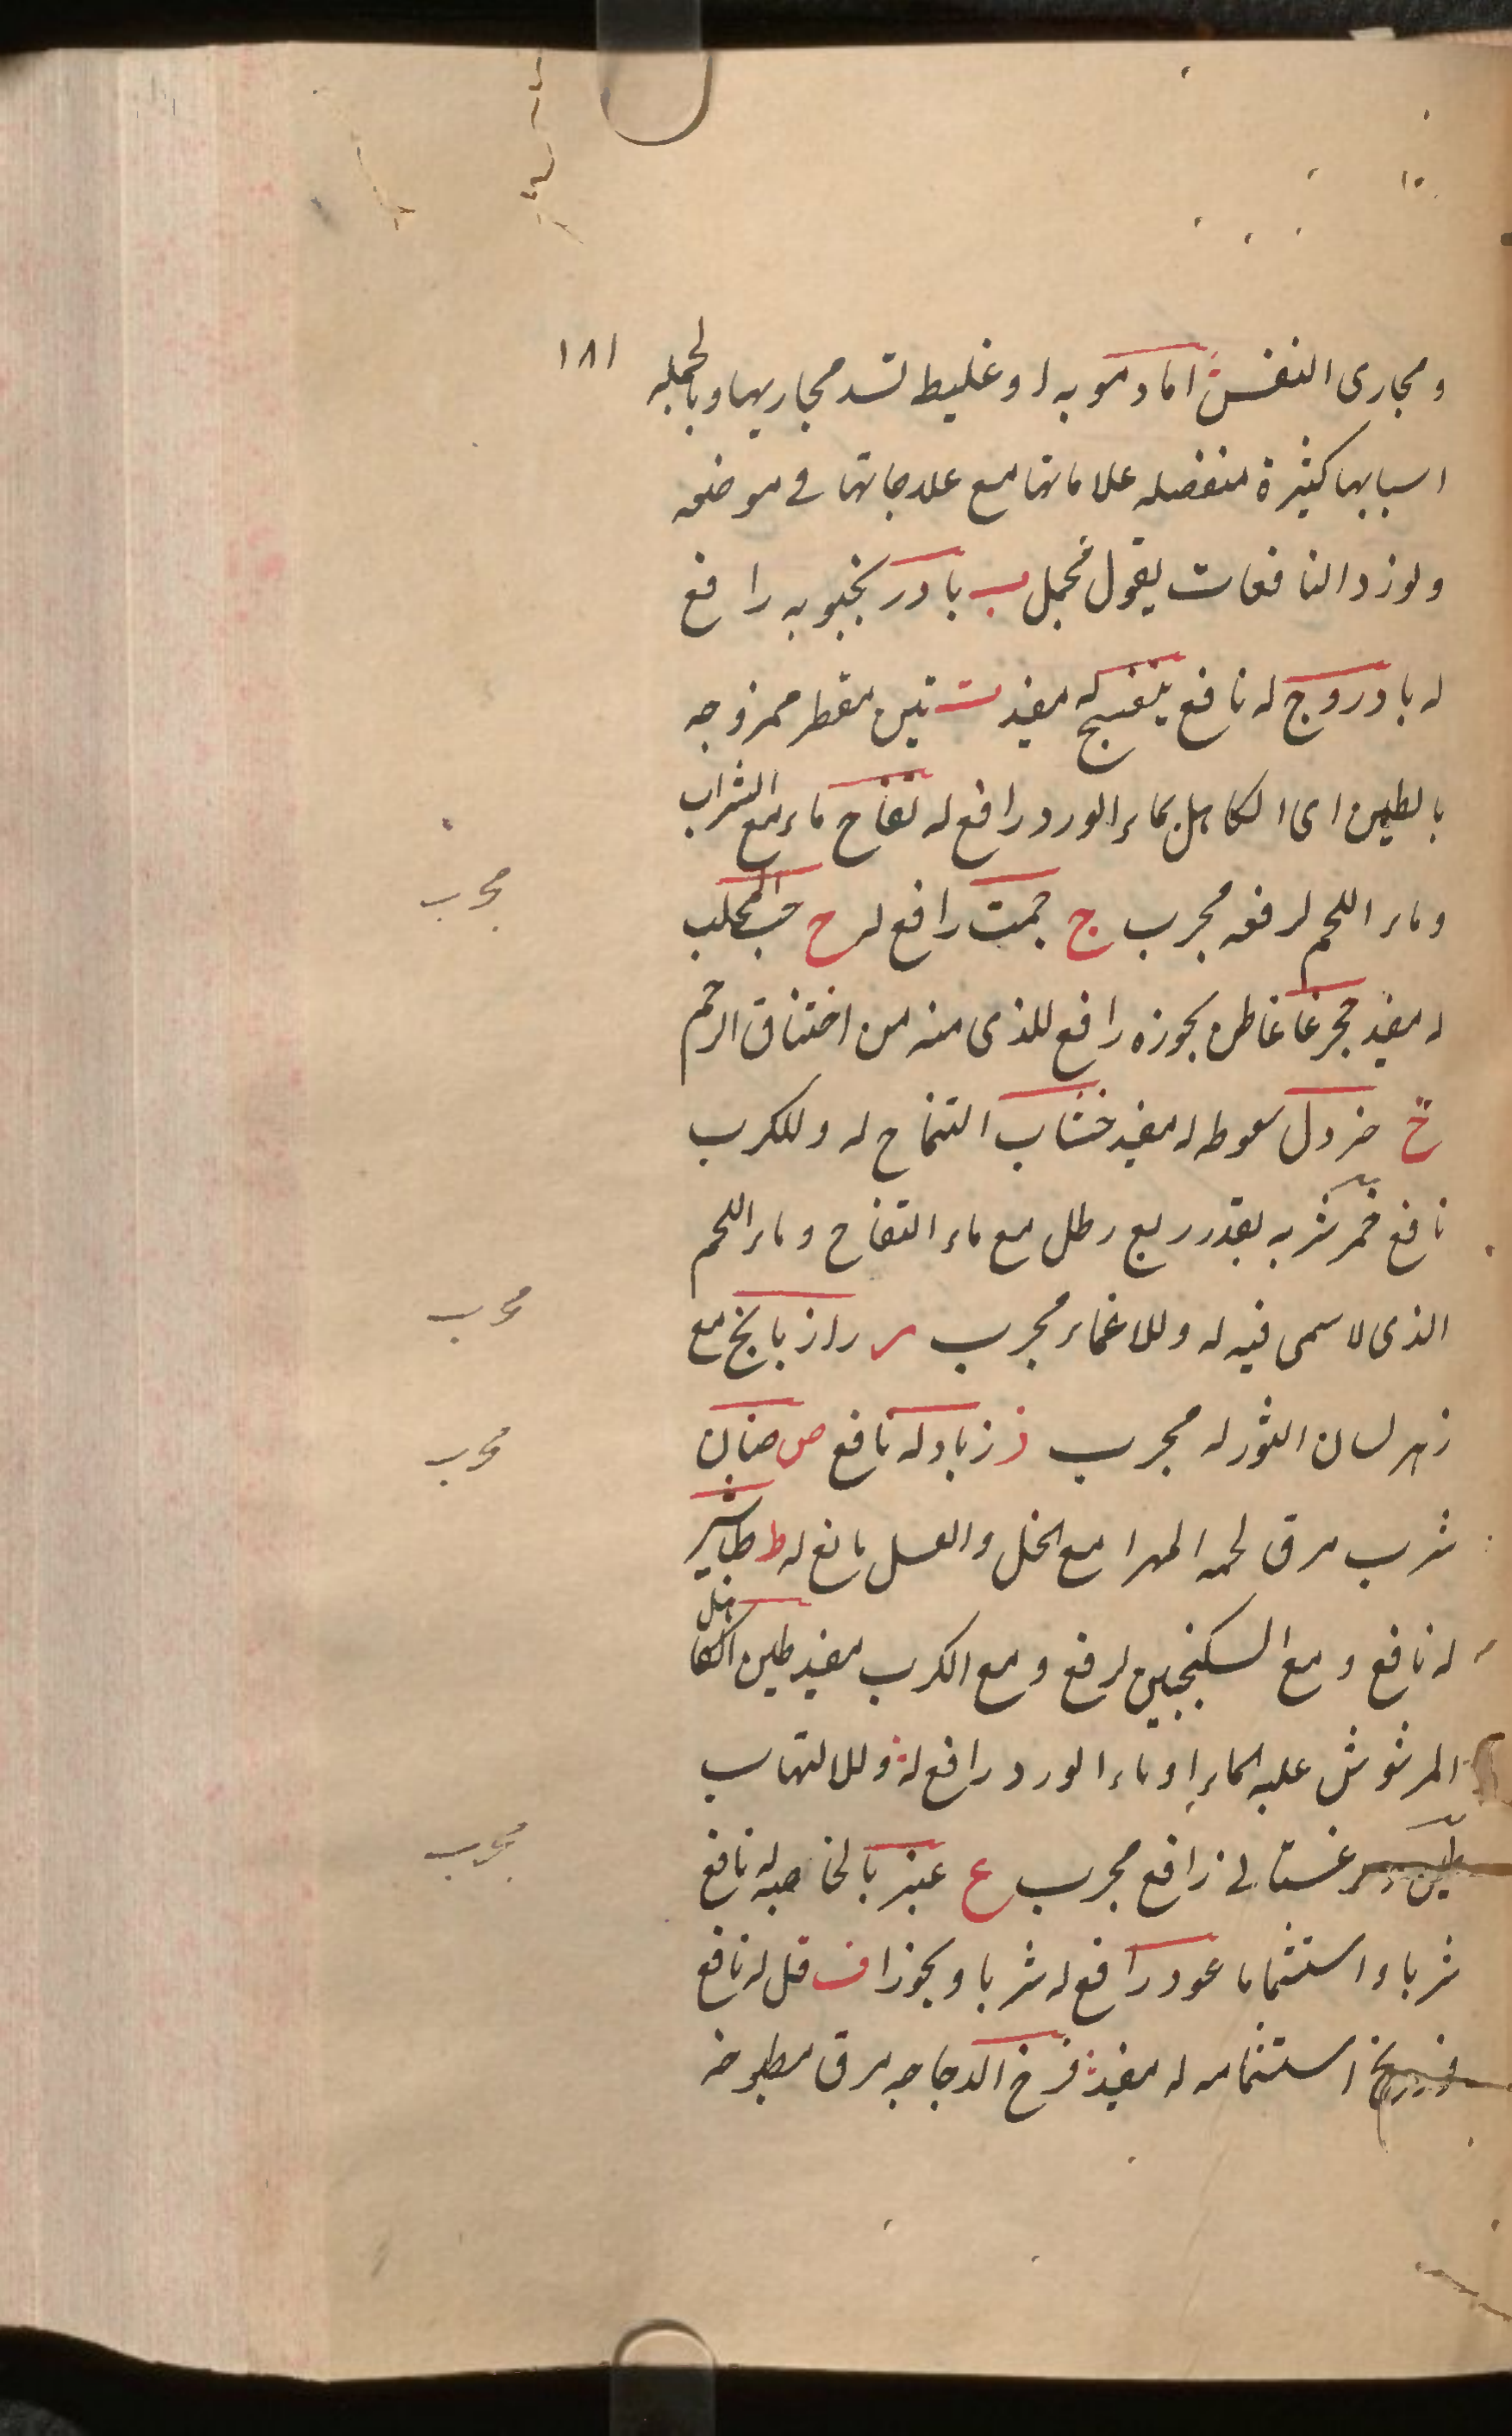 ١٨١
ومجارى النفس اما دمويه او غليظ تسد مجاريها وبالجمله
اسبابها كثيرة منفصله علاماتها مع علاجاتها فى موضعه
ولنورد النافعات بقول مجمل ب بادرنجبويه رافع
له بادروج له نافع بنفسج له مفيد ت تين مقطر ممزوجه
بالطين اى الكاهل بماء الورد رافع له تفاح ماء مع الشراب
وماء اللحم لرفعه مجرب ج جمت رافع له ح حب المحلب
مجرب
له مفيد حجر غاغاطس بخوره رافع للذى منه من اختناق الرحم
خ خردل سعوطه له مفيد خشاب التفاح له وللكرب
نافع خمر شربه بقدر ربع رطل مع ماء التفاح وماء اللحم
الذى لا سمن فيه له وللاغماء مجرب ر رازيانج مع
مجرب
زهر لسان الثور له مجرب ز زباد له نافع ض ضان
مجرب
شرب مرق لحمه المهرا مع الخل والعسل نافع له ط طباشير
له نافع ومع السكنجبين لرفع ومع الكرب مفيد طين الكاهل
المرشوش عليه الماء او ماء الورد رافع له وللالتهاب
رافع مجرب ع عنبر بالخاصيه له نافع
مجرب
شربا واستشماما عود رافع له شربا وبخورا ف فل له نافع
استشمامه له مفيد فرخ الدجاجه مرق مطبوخه